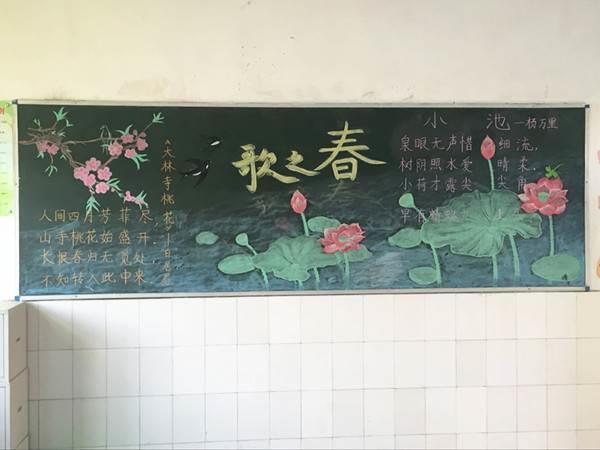 春之歌
《大林寺桃花》—白居易
人间四月芳菲尽
山寺桃花始盛开.
长恨春归无觅处
不知转入此中来
小池 —杨万里
泉眼无声惜细流,
树阴照水爱晴柔.
小荷才露尖尖角
早有